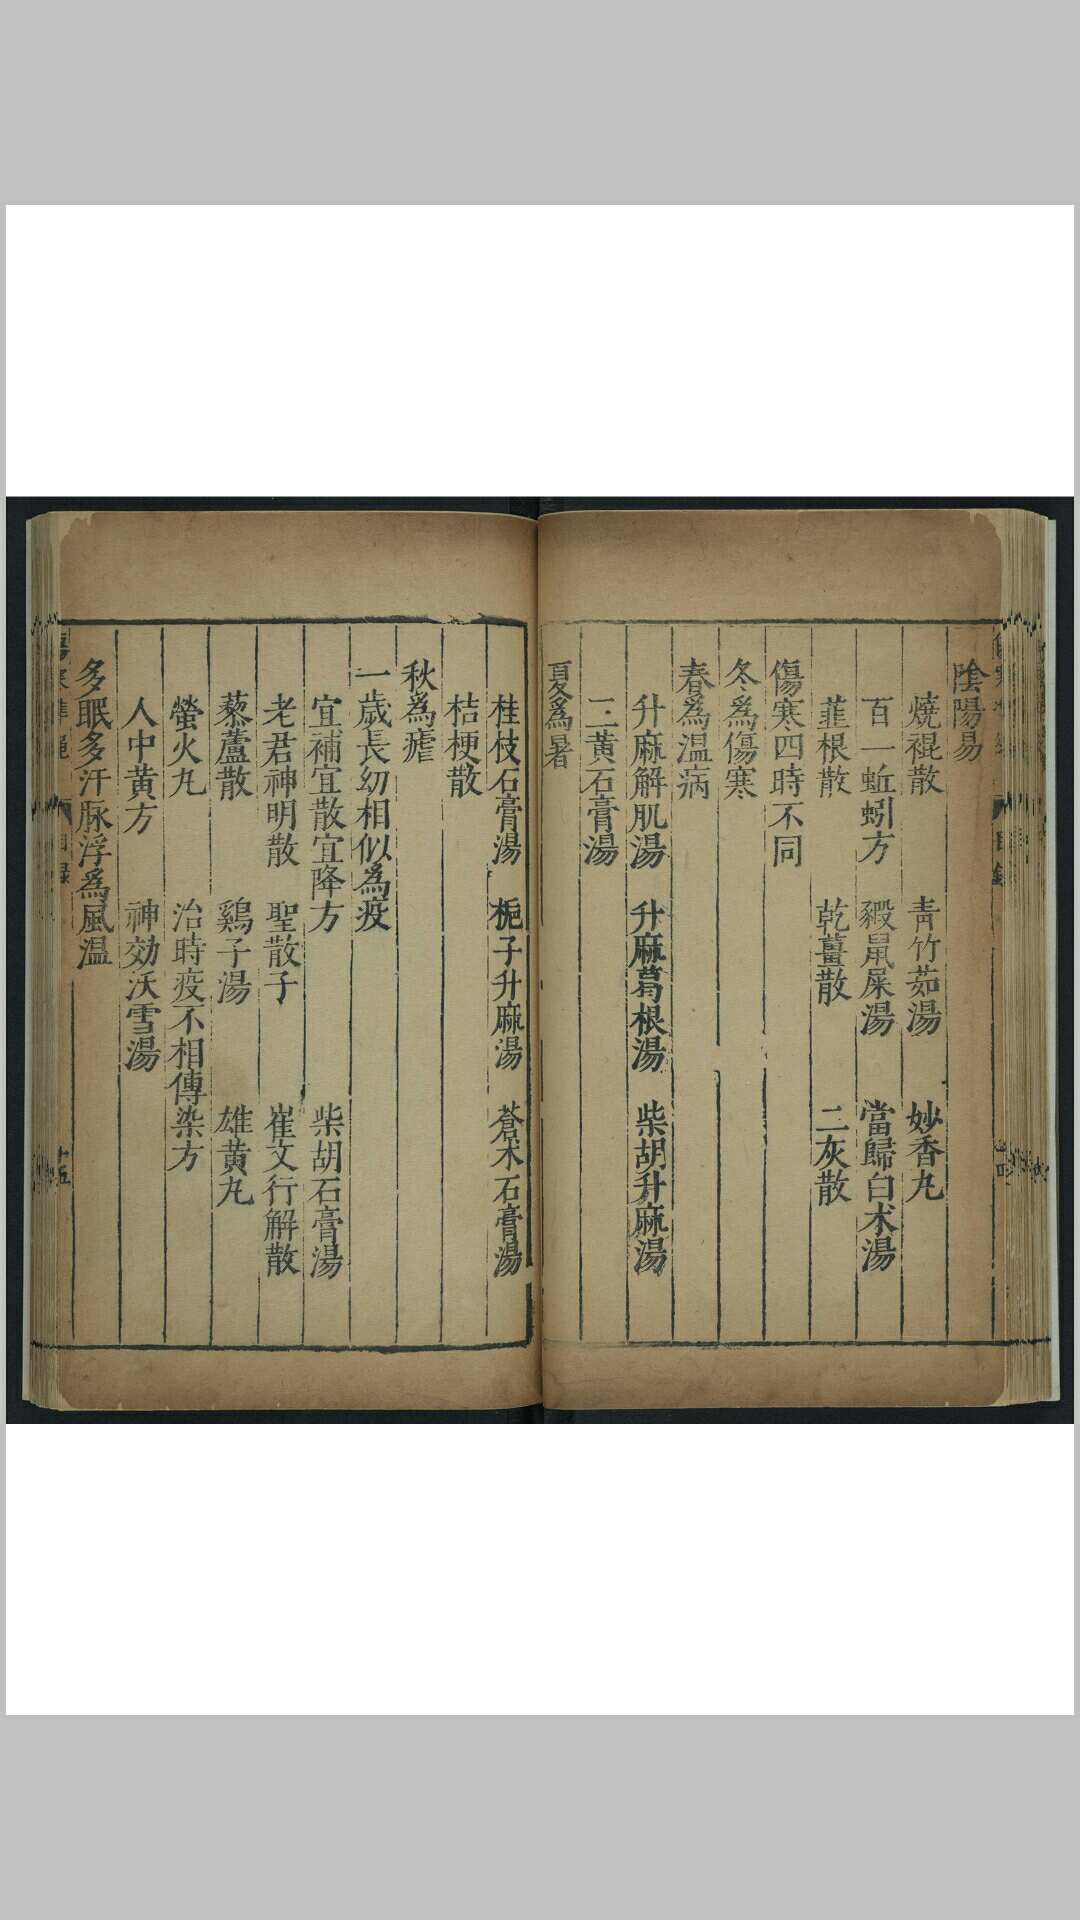 陰陽易
燒裩散　青竹茹湯　妙香丸
百一蚯蚓方　豭鼠屎湯　當歸白术湯
薤根散　乾薑散　二灰散
傷寒四時不同
冬爲傷寒
春爲温病
升麻解肌湯　升麻葛根湯　柴胡升麻湯
三黄石膏湯
夏爲暑
桂枝石膏湯　梔子升麻湯　蒼术石膏湯
桔梗散
秋爲瘧
一歲長幼相似爲疫
宜補宜散宜降方　柴胡石膏湯
老君神明散　聖散子　崔文行解散
藜蘆散　鷄子湯　雄黄丸
螢火丸　治時疫不相傳染方
人中黄方　神効沃雪湯
多眠多汗脉浮爲風温
目録
十五